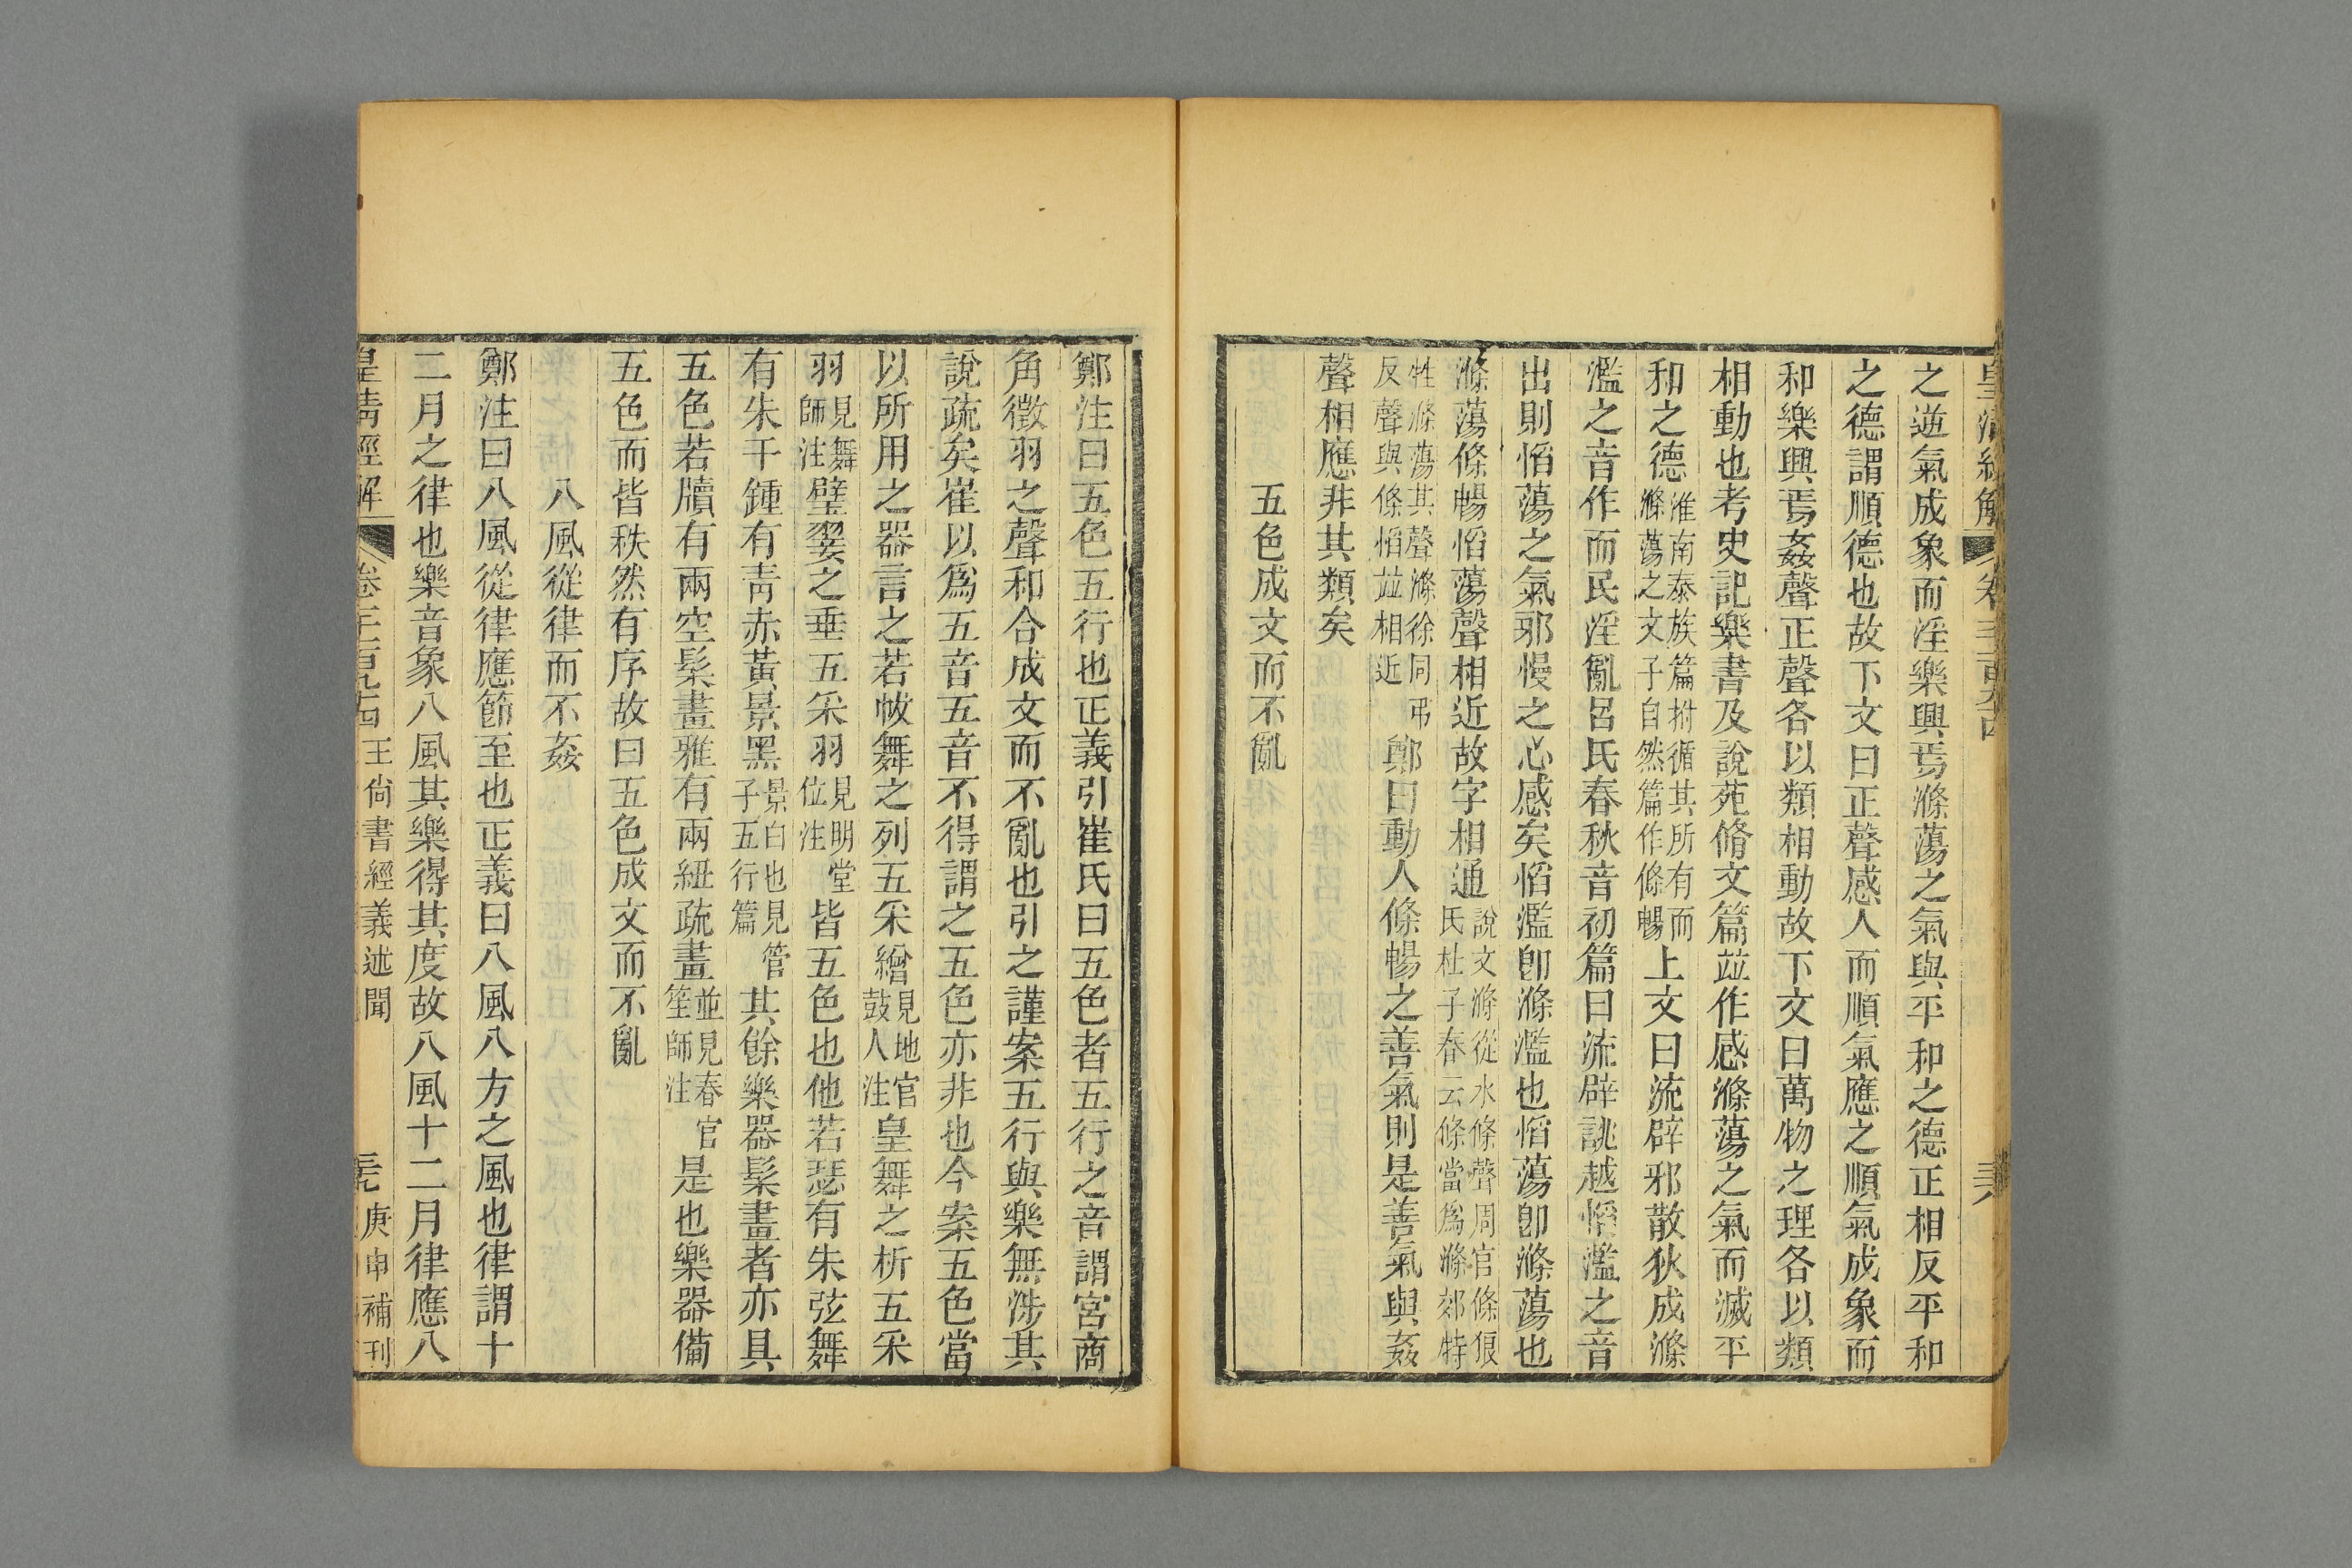 皇清經解 卷一千一百九十四 三六
之逆氣成象而淫樂興焉滌蕩之氣與平和之德正相反平和
之德謂順德也故下文曰正聲感人而順氣應之順氣成象而
和樂興焉姦聲正聲各以類相動故下文曰萬物之理各以類
相動也考史記樂書及說苑脩文篇竝作感滌蕩之氣而滅平
和之德淮南泰族篇拊循其所有而滌蕩之文子自然篇作條暢上文曰流辟邪散狄成滌
濫之音作而民淫亂呂氏春秋音初篇曰流辟誂越慆濫之音
出則慆蕩之氣邪慢之心感矣慆濫卽滌濫也慆蕩卽滌蕩也
滌蕩條暢慆蕩聲相近故字相通說文滌從水條聲周官條狼氏杜子春云條當爲滌郊特
牲滌蕩其聲滌徐同弔反聲與條慆竝相近鄭曰動人條暢之善氣則是善氣與姦
聲相應非其類矣
五色成文而不亂
鄭注曰五色五行也正義引崔氏曰五色者五行之音謂宮商
角徵羽之聲和合成文而不亂也引之謹案五行與樂無涉其
說疏矣崔以爲五音五音不得謂之五色亦非也今案五色當
以所用之器言之若帗舞之列五采繒見地官鼓人注皇舞之析五采
羽見舞師注璧翣之垂五采羽見明堂位注皆五色也他若瑟有朱弦舞
有朱干鍾有靑赤黃景黑景白也見管子五行篇其餘樂器髹畫者亦具
五色若牘有兩空髹畫雅有兩紐疏畫並見春官笙師注是也樂器備
五色而皆秩然有序故曰五色成文而不亂
八風從律而不姦
鄭注曰八風從律應節至也正義曰八風八方之風也律謂十
二月之律也樂音象八風其樂得其度故八風十二月律應八
皇清經解 卷一千一百九十四 王尙書經義述聞 三七 庚申補刊